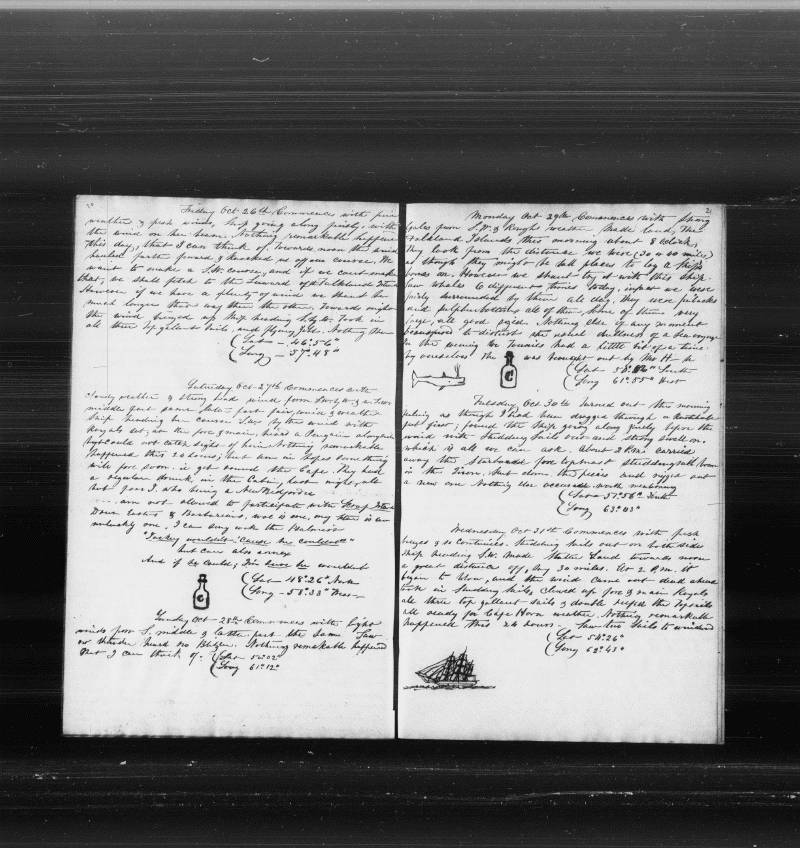 20
Friday Oct 26th Commences with fine
weather & fresh winds, Ship going along finely, with
the wind on her beam. Nothing remarkable happened
this day, that I can think of. Towards noon the wind
hauled farther forward & knocked us off our course. We
want to make a S.W. course, and if we can't make
that, we shall fetch to the Leeward of the Falkland Islands
However if we have a plenty of wind we shant be
much longer that way than the other. Towards night
the wind Ship heading S by W. Took in
all three top gallant Sails, and flying Jib. Nothing More
(Lat — 46°56"
(Long — 57°48"
Saturday Oct 27th Commences with
cloudy weather & strong head winds from S.W.
middle part same later part fair wind & weather
Ship heading her course S.W. by the wind with
Royals set, at the fore & main, heard a Penguin alongside
but could not catch sight of him. Nothing remarkable
happened this 24 hours; but am in hopes something
will for soon. it get round the Cape. They had
a regular drunk, in the Cabin, last night, all
but poor I. who being a New Bedforder
am not allowed to participate with Long Island
Down Easters & Barbarians, woe is me, my star is an
unlucky one. I can say with the
"Tucky wouldn't "Cause he couldn't"
but can also annex
And if he could; I'm sure he wouldn't
(Lat — 48°26" 
(Long — 58°33" West
C
Sunday Oct 28th Commences with light
winds from S, middle & latter part the same Saw
or thunder heard no Nothing remarkable happened
that I can think of. (Lat 50°02"
(Long 61°12"
21
Monday Oct 29th Commences with Strong
Gales from S.W. & Rough weather Made land, The
Falkland Islands this morning about 8 oclock,
They look from the distance we were (30 or 40 miles)
as though they might be bad places to lay a Ships
bones on. However we shan't try it with this Ship.
Saw whales 6 different times today, in fact we were
fairly surrounded by them all day, they were finbacks
and sulphurbottoms all of them, Some of them very
large, all good sized. Nothing else of any moment
transpired to disturb the usual dullness of a sea voyage
In the evening we had a little bit of a time
by ourselves The C was brought out by Mr H. A
(Lat South
(Long 61°55" West
Tuesday Oct 30th Turned out this morning
feeling as though I had been dragged through a
feet first; found the Ship going along finely before the
wind with Studding Sails out and strong swell on.
which is all we can ask. About 2 P.M. carried
away the Starboard fore topmast studdingsail boom
in the Iron. Sent down the pieces and rigged out
a new one Nothing else occurred worth mentioning
(Lat 51°56" South
(Long 63°43"
Wednesday Oct 31st Commences with fresh
breezes & so continues. Studding Sails out on both sides
Ship heading S.W. Made Staten Land towards noon
a great distance off, say 30 miles. At 2 P.M. it
began to blow, and the wind came out dead ahead
took in Studding Sails, clewed up fore & main Royals
all three top gallant sails & double reefed the topsails
all ready for Cape Horn weather. Nothing remarkable
happened this 24 hours. Saw two Sails to windward
(Lat 54°26"
(Long 62°43"